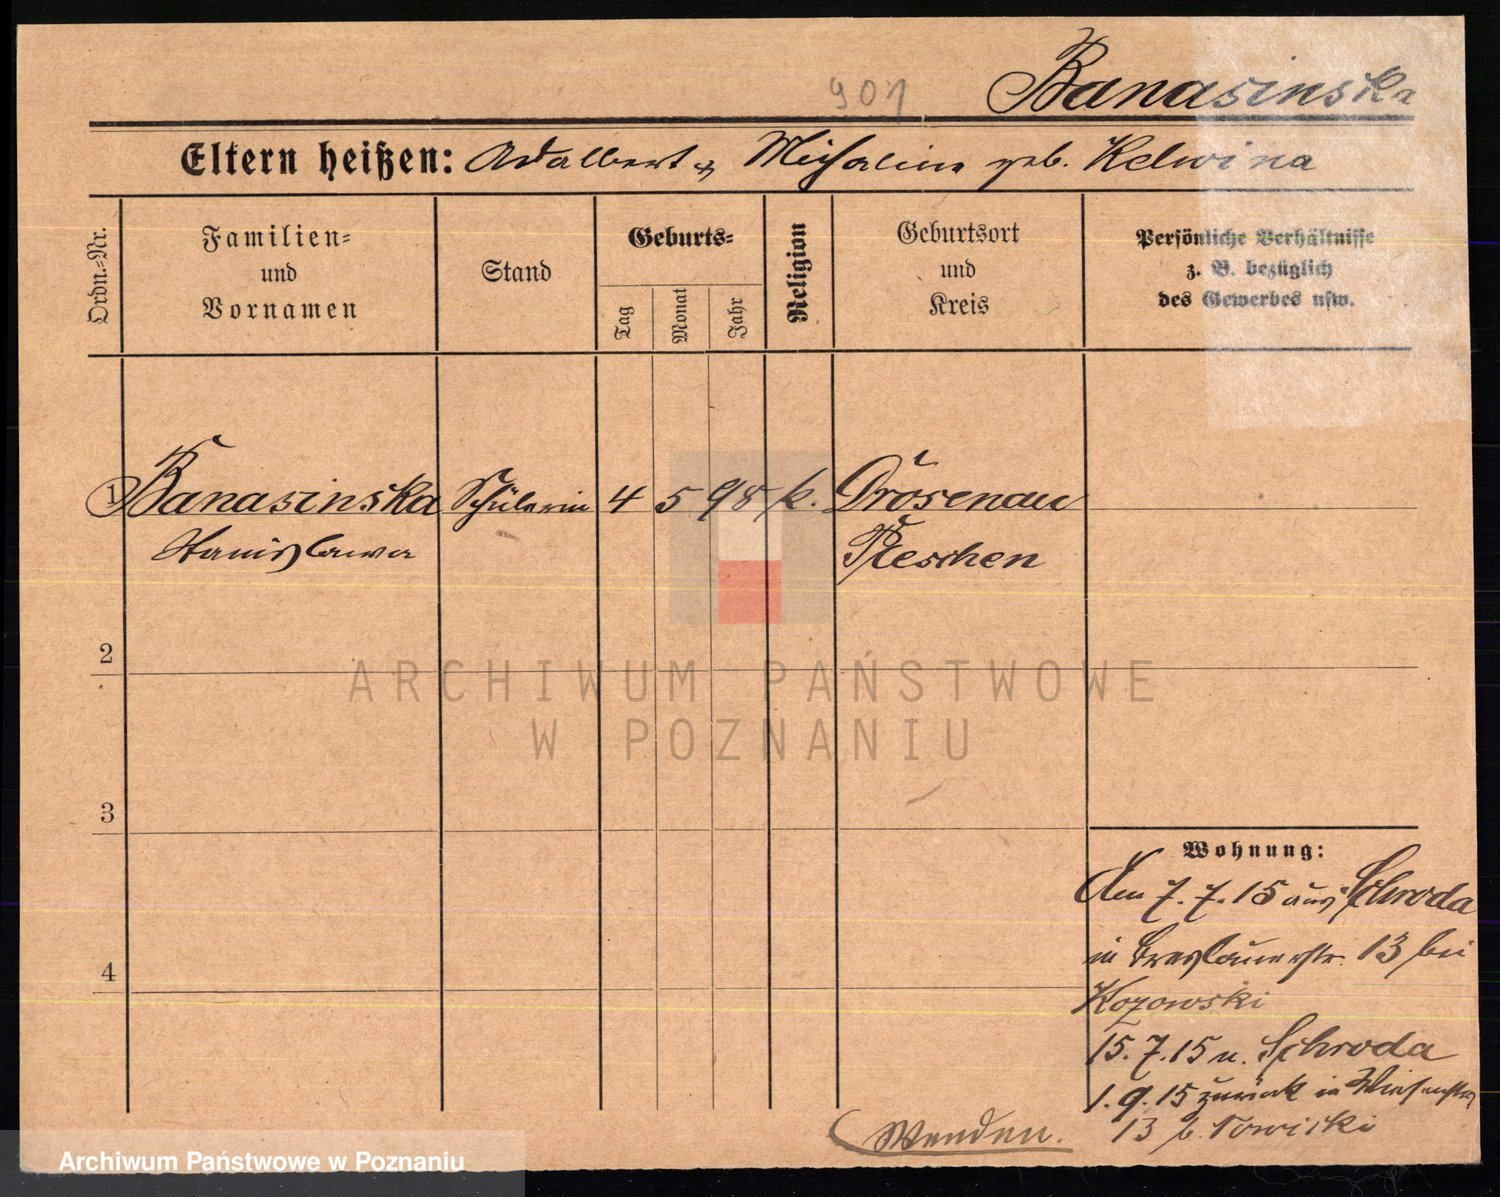 901 Banasinska
Eltern heißen: Adalbert u. Michalina geb. Kelwina
Ordn.-Nr.
Familien- und Vornamen
Stand
Geburts-
Tag
Monat
Jahr
Religion
Geburtsort und Kreis
Persönliche Verhältnisse
z. B. bezüglich
des Gewerbes usw.
1 Banasinska Schülerin 4 5 98 k. Drosenau
Stanislawa Pleschen
2
ARCHIWUM PAŃSTWOWE
W POZNANIU
3
4
Wohnung:
Am 7.7.15 aus Schroda
in Breslauerstr. 13 bei
Kozowski
15.7.15 n. Schroda
1.9.15 zurück in Wiesenstr.
13 b.
Wenden.
Archiwum Państwowe w Poznaniu